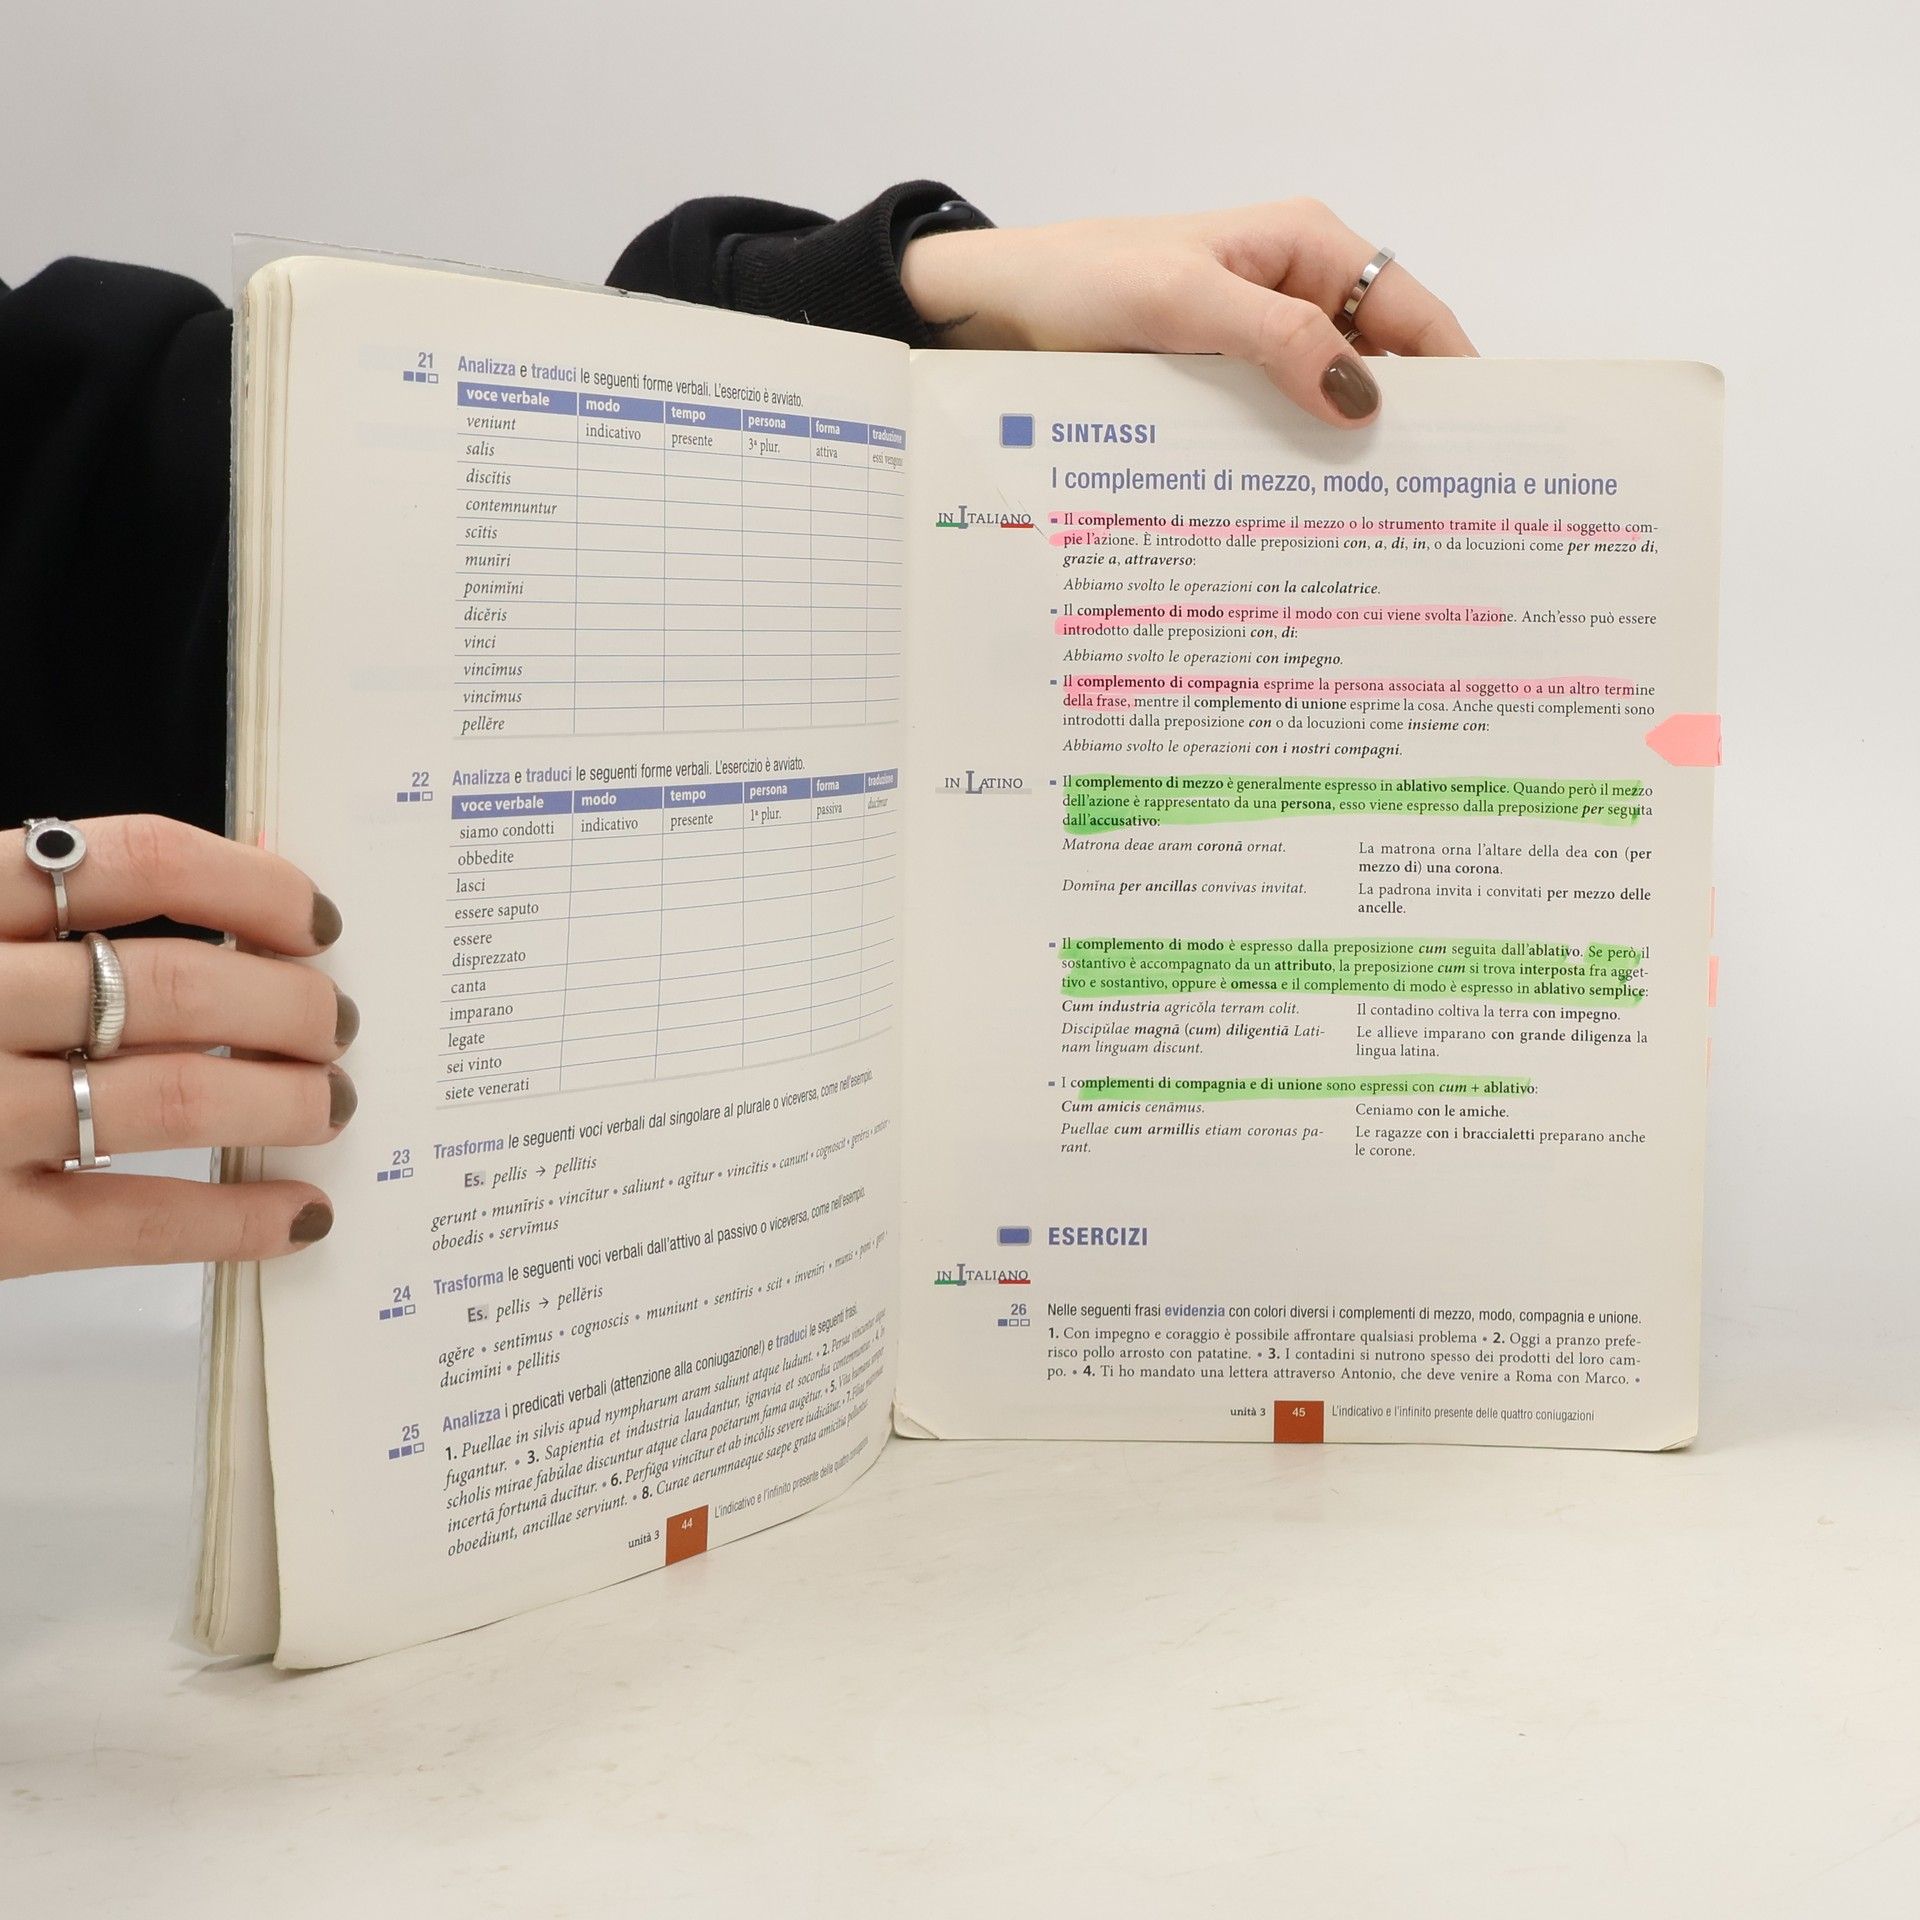 21 Analizza e traduci le seguenti forme verbali. L'esercizio è avviato.
voce verbale modo tempo persona forma traduzione
veniunt indicativo presente 3ª plur. attiva essi vengono
salis
discĭtis
contemnuntur
scītis
munīri
ponimĭni
dicĕris
vinci
vincīmus
vincĭmus
pellĕre
22 Analizza e traduci le seguenti forme verbali. L'esercizio è avviato.
voce verbale modo tempo persona forma traduzione
siamo condotti indicativo presente 1ª plur. passiva ducimur
obbedite
lasci
essere saputo
essere
disprezzato
canta
imparano
legate
sei vinto
siete venerati
23 Trasforma le seguenti voci verbali dal singolare al plurale o viceversa, come nell'esempio.
Es. pellis → pellĭtis
gerunt • munīris • vincītur • saliunt • agĭtur • vincĭtis • canunt • cognoscit • gerĕris •
oboedis • servīmus
24 Trasforma le seguenti voci verbali dall'attivo al passivo o viceversa, come nell'esempio.
Es. pellis → pellĕris
agĕre • sentīmus • cognoscis • muniunt • sentīris • scit • inveniri • munis • poni •
ducimĭni • pellitis
25 Analizza i predicati verbali (attenzione alla coniugazione!) e traduci le seguenti frasi.
1. Puellae in silvis apud nympharum aram saliunt atque ludunt. • 2. Persae vincuntur atque
fugantur. • 3. Sapientia et industria laudantur, ignavia et socordia contemnuntur. • 4. In
scholis mirae fabŭlae discuntur atque clara poētarum fama augētur. • 5. Vita humana semper
incertā fortunā ducĭtur. • 6. Perfŭga vincītur et ab incŏlis severe iudicātur. • 7. Filiae
oboediunt, ancillae serviunt. • 8. Curae aerumnaeque saepe grata amicitia pelluntur.
unità 3 44 L'indicativo e l'infinito presente delle quattro coniugazioni
SINTASSI
I complementi di mezzo, modo, compagnia e unione
IN ITALIANO
▪ Il complemento di mezzo esprime il mezzo o lo strumento tramite il quale il soggetto com-
pie l'azione. È introdotto dalle preposizioni con, a, di, in, o da locuzioni come per mezzo di,
grazie a, attraverso:
Abbiamo svolto le operazioni con la calcolatrice.
▪ Il complemento di modo esprime il modo con cui viene svolta l'azione. Anch'esso può essere
introdotto dalle preposizioni con, di:
Abbiamo svolto le operazioni con impegno.
▪ Il complemento di compagnia esprime la persona associata al soggetto o a un altro termine
della frase, mentre il complemento di unione esprime la cosa. Anche questi complementi sono
introdotti dalla preposizione con o da locuzioni come insieme con:
Abbiamo svolto le operazioni con i nostri compagni.
IN LATINO
▪ Il complemento di mezzo è generalmente espresso in ablativo semplice. Quando però il mezzo
dell'azione è rappresentato da una persona, esso viene espresso dalla preposizione per seguita
dall'accusativo:
Matrona deae aram coronā ornat. La matrona orna l'altare della dea con (per
mezzo di) una corona.
Domĭna per ancillas convivas invitat. La padrona invita i convitati per mezzo delle
ancelle.
▪ Il complemento di modo è espresso dalla preposizione cum seguita dall'ablativo. Se però il
sostantivo è accompagnato da un attributo, la preposizione cum si trova interposta fra agget-
tivo e sostantivo, oppure è omessa e il complemento di modo è espresso in ablativo semplice:
Cum industria agricŏla terram colit. Il contadino coltiva la terra con impegno.
Discipŭlae magnā (cum) diligentiā Lati- Le allieve imparano con grande diligenza la
nam linguam discunt. lingua latina.
▪ I complementi di compagnia e di unione sono espressi con cum + ablativo:
Cum amicis cenāmus. Ceniamo con le amiche.
Puellae cum armillis etiam coronas pa- Le ragazze con i braccialetti preparano anche
rant. le corone.
ESERCIZI
IN ITALIANO
26 Nelle seguenti frasi evidenzia con colori diversi i complementi di mezzo, modo, compagnia e unione.
1. Con impegno e coraggio è possibile affrontare qualsiasi problema • 2. Oggi a pranzo prefe-
risco pollo arrosto con patatine. • 3. I contadini si nutrono spesso dei prodotti del loro cam-
po. • 4. Ti ho mandato una lettera attraverso Antonio, che deve venire a Roma con Marco. •
unità 3 45 L'indicativo e l'infinito presente delle quattro coniugazioni